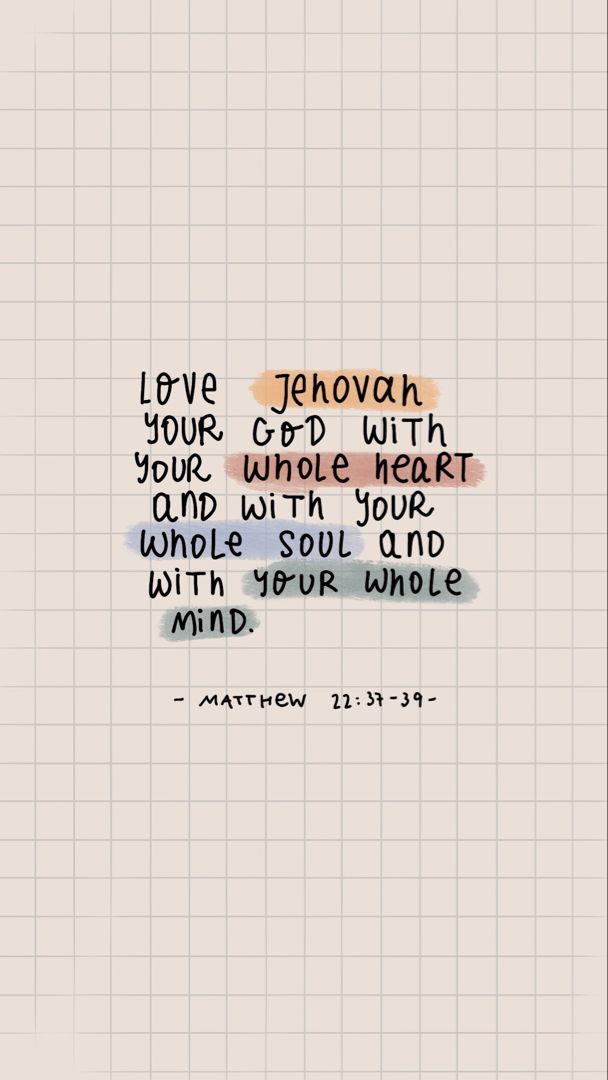 Love Jehovah
your God with
your whole heart
and with your
whole soul and
with your whole
mind.
- Matthew 22:37-39-